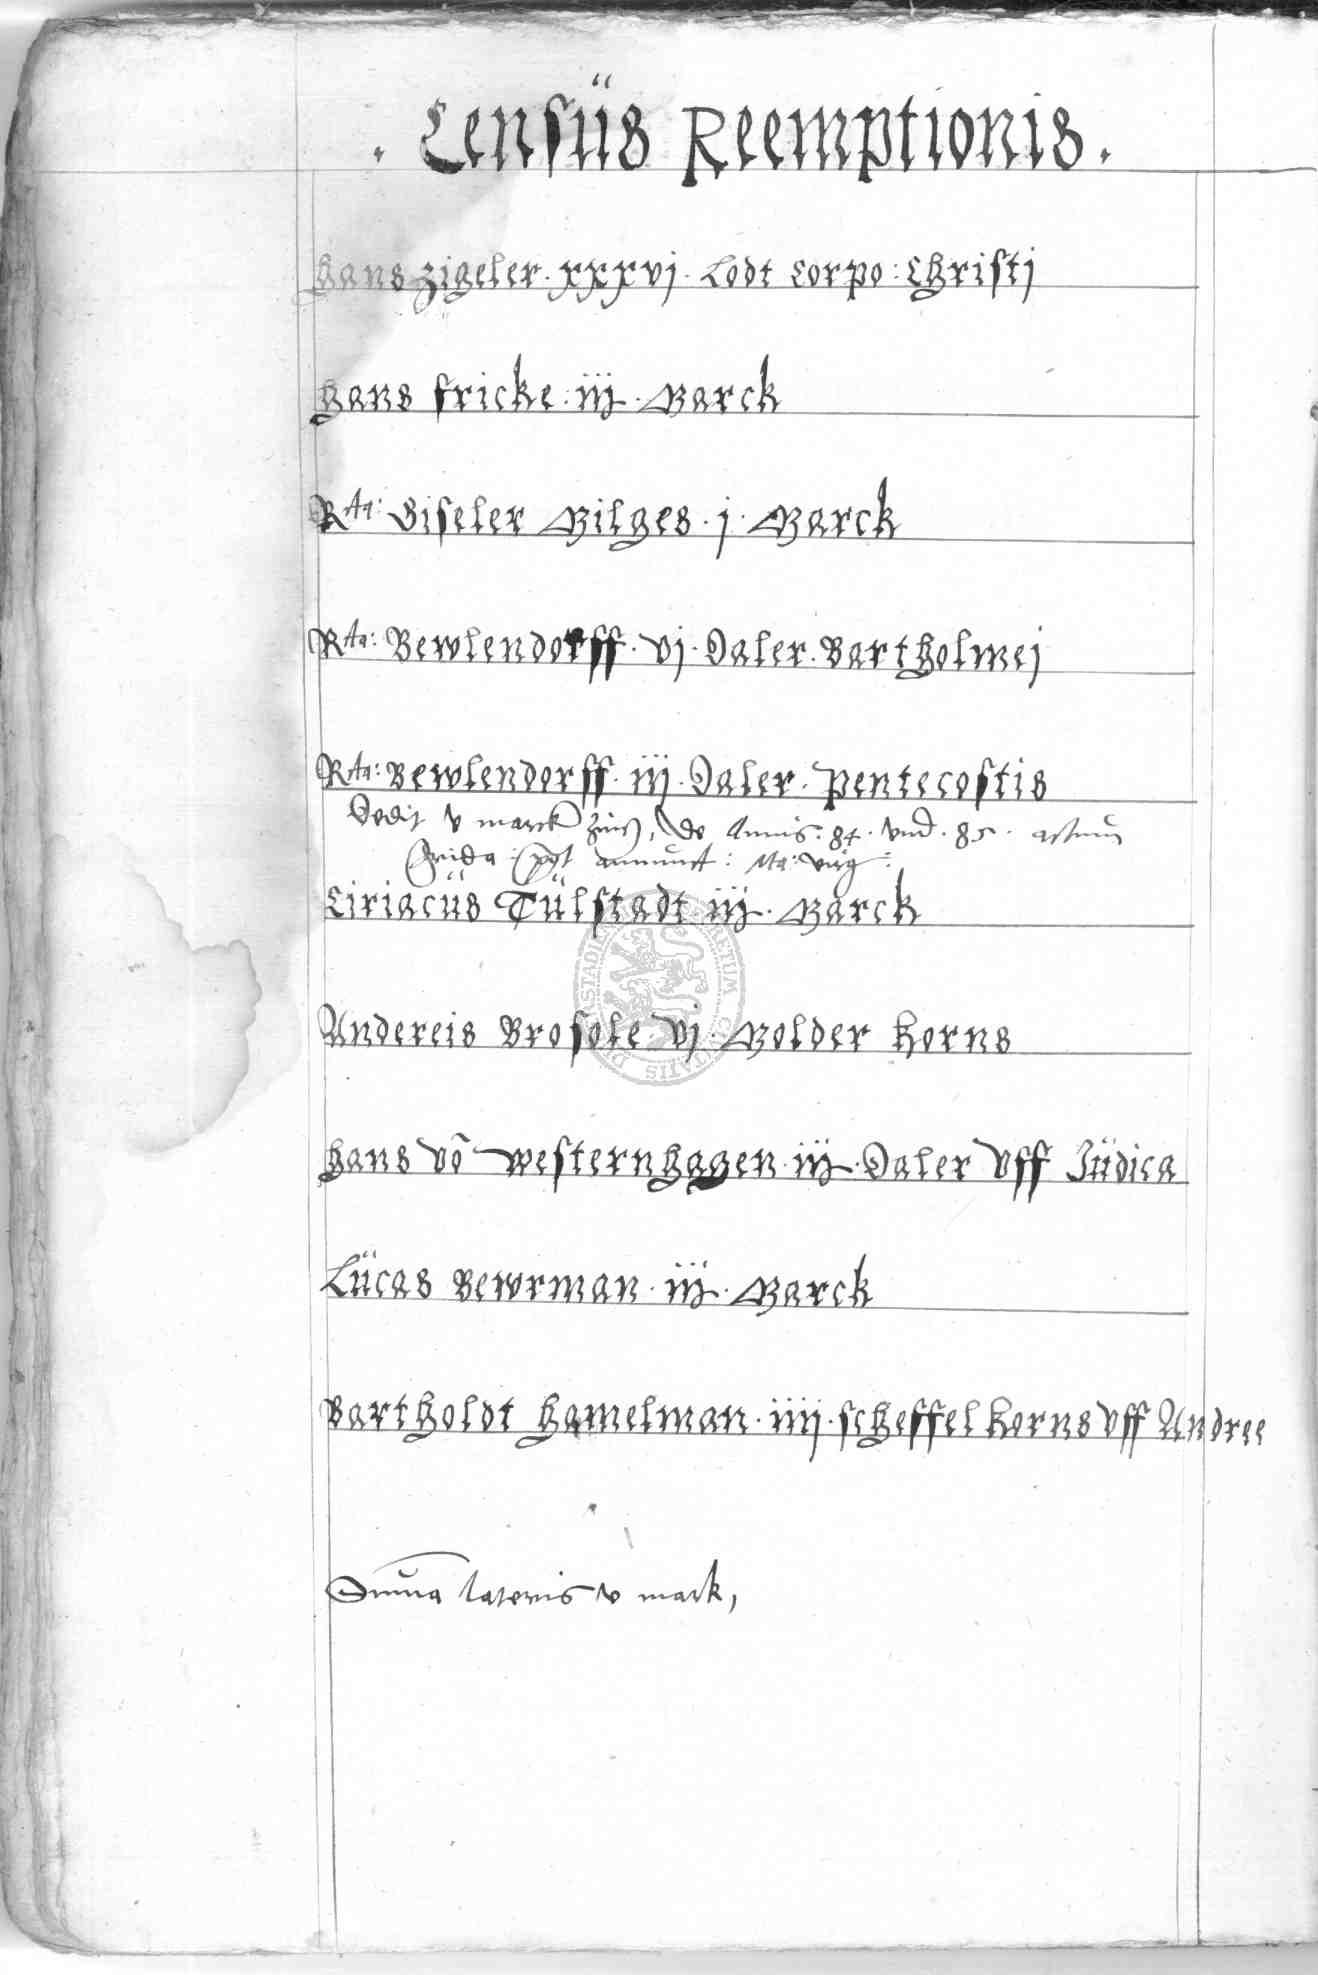 . Censüs Reemptionis .
Hans Zigeler · xxxvj · Lodt Corpo : Christi
Hans fricke · iij · Marck
Rta: Giseler Milges · j · Marck
Rta: Bewlendorff · vj · Daler · Bartholmej
Rta: Bewlendorff · iij · Daler · Pentecostis
Dedit v marck Zins, de Annis · 84 · vnd · 85 ·
annunct : Ma: virg:
Ciriacüs Tülstadt iij · Marck
Andereis Brosole vj · Molder Korns
Hans võ Westernhagen · iij · Daler Vff Jüdica
Lücas Bewrman · iij · Marck
Bartholdt Hamelman · iiij · scheffel Korns Vff Andree
Suma lateris v mark,